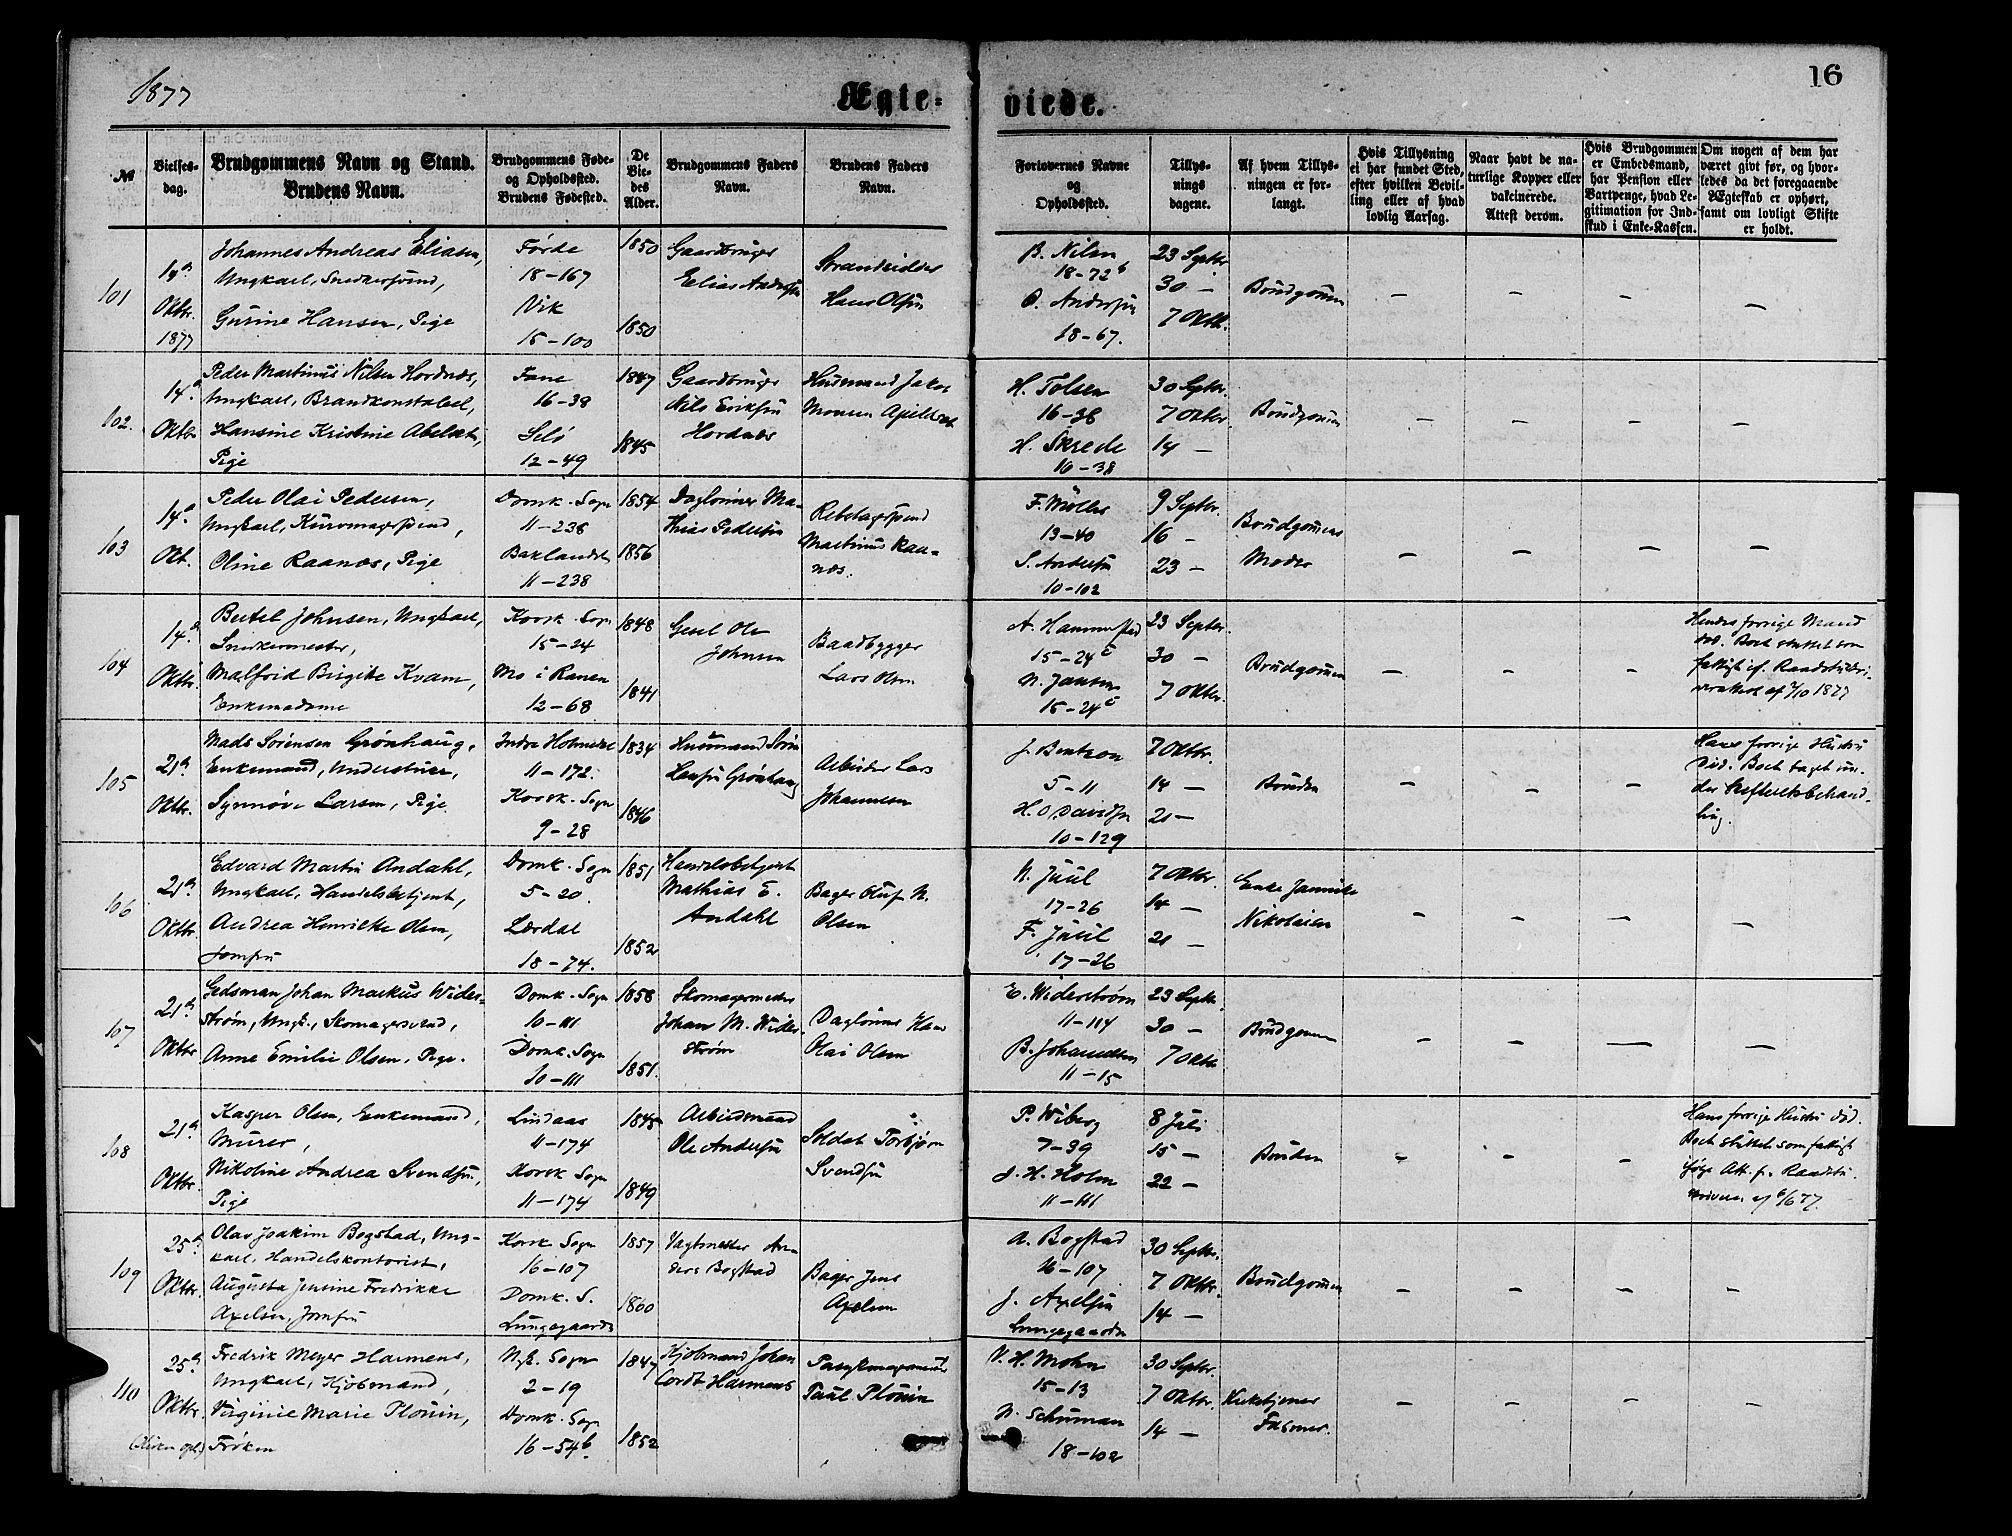 1877
Ægte-
viede.
16
№
Vielses-
dag.
Brudgommens Navn og Stand.
Brudens Navn.
Brudgommens Føde-
og Opholdsted.
Brudens Fødested.
De
Vie-
des
Alder.
Brudgommens Faders
Navn.
Brudens Faders
Navn.
Forlovernes Navne
og
Opholdsted.
Tillys-
nings
dagene.
Af hvem Tillys-
ningen er for-
langt.
Hvis Tillysning
ei har fundet Sted,
efter hvilken Bevil-
ling eller af hvad
lovlig Aarsag.
Naar havt de na-
turlige Kopper eller
vakcinerede.
Attest derom.
Hvis Brudgommen
er Embedsmand,
har Pension eller
Vartpenge, hvad Le-
gitimation for Ind-
skud i Enke-Kassen.
Om nogen af dem har
været givt før, og hvor-
ledes da det foregaaende
Ægteskab er ophørt,
samt om lovligt Skifte
er holdt.
101
14de
Oktbr.
1877
Johannes Andreas Eliasen,
Ungkarl, Snedkersvend,
Gurine Hansen, Pige
Førde
18-167
Vik
15-100
1850
1850
Gaardbruger
Elias Andersen
Strandsidder
Hans Olsen
B. Nilsen
18-72b
O. Andersen
18-67.
23 Septbr
30 -
7 Oktbr.
Brudgommen
102.
14de
Oktbr
Peder Martinus Nilsen Hordnæs,
Ungkarl, Brandkonstabel,
Hansine Kristine Abelset,
Pige
Fane
16-38
Selø
12-49
1847
1845
Gaardbruger
Nils Eriksen
Hordnæs
Huusmand Jakob
Monsen
H. Tolsen
16-38
H. Skrede
16-38
30 Septbr.
7 Oktbr.
14 -
Brudgommen
103
14de
Okt.
Peder Olai Pedersen,
Ungkarl,
Oline Raanæs, Pige
Domk. Sogn
11-238
Baklandet
11-238
1854
1856
Daglønner Ma-
thias Pedersen
Rebslagersvend
Martinus Raa-
næs.
F. Møller
13-40
S. Andersen
10-102
9 Septbr.
16 -
23 -
Brudgommens
Moder
104
14de
Oktbr.
Bertel Johnsen, Ungkarl,
Snedkermester,
Malfrid Birgitte Kvam,
Enkemadame
Korsk. Sogn
15-24
Mo i Ranen
12-68
1848
1841
Ole
Johnsen
Baadbygger
Lars Olsen
A. Hammerstad
15-24c
N. Jansen
15-24c
23 Septbr.
30 -
7 Oktbr.
Brudgommen
Hendes forrige Mand
død. Boet sluttet som
fattigt if. Raadstuskri-
verattest af 7/10 1877
105
21de
Oktbr.
Mads Sørensen Grønhaug,
Enkemand,
Synnøve Larsen, Pige
Indre Holmedal
11-172.
Korsk. Sogn
9-28
1834
1846
Huusmand Søren
Grønhaug
Arbeider Lars
Johannesen
J. Bentzon
5-11
H. O Davidsen
10-129
7 Oktbr.
14 -
21 -
Bruden
Hans forrige Hustru
død. Boet taget un-
der Skifteretsbehand-
ling.
106
21de
Oktbr
Edvard Martin Andahl,
Ungkarl, Handelsbetjent,
Andrea Henrikke Olsen,
Jomfru
Domk. Sogn
5-20.
Lærdal
18-74.
1851
1852
Handelsbetjent
Mathias E.
Andahl
Bager Oluf N.
Olsen
N. Juul
17-26
F. Juul
17-26
7 Oktbr.
14 -
21 -
Enke Jannike
Nikolaisen
107
21de
Oktbr
Gedsman Johan Markus Wider-
strøm, Ungk., Skomagersvend,
Anne Emilie Olsen, Pige.
Domk. Sogn
10-111
Domk. Sogn
10-111
1858
1851.
Skomagermester
Johan M. Wider-
strøm
Daglønner Hans
Olai Olsen
E. Widerstrøm
11-114
B. Johannessen
11-15
23 Septbr.
30 -
7 Oktbr
Brudgommen
108
21de
Oktbr.
Kasper Olsen, Enkemand,
Murer,
Nikoline Andrea Svendsen,
Pige
Lindaas
11-174
Korsk Sogn
11-174
1845
1849
Arbeidsmand
Ole Andersen
Soldat Torbjørn
Svendsen
P. Wiberg
7-39
J. H. Holm
11-111
8 Juli
15 -
22 -
Bruden
Hans forrige Hustru død.
Boet sluttet som fattigt
ifølge Att. fr. Raadstu-
skriveren af 6/6 77.
109
25de
Oktbr.
Olav Joakim Bogstad, Ung-
karl, Handelskontorist,
Augusta Jensine Fredrikke
Axelsen, Jomfru
Korsk. Sogn
16-107
Domk. S.
Lungegaarden
1857
1860
Vagtmester An-
ders Bogstad
Bager Jens
Axelsen
A. Bogstad
16-107
J. Axelsen
Lungegaarden
30 Septbr.
7 Oktbr.
14 -
Brudgommen
110
25de
Oktbr.
Fredrik Meyer Harmens,
Ungkarl, Kjøbmand,
Virginie Marie Plouin,
Frøken
Nyk. Sogn
2-19
Domk. Sogn
16-54b.
1847
1852
Kjøbmand Johan
Cordt Harmens
Paraplymagermester
Paul Plouin
V. H. Mohn
15-13
N. Schuman
18-102
30 Septbr.
7 Oktbr.
14 -
Kirketjener
Fasmer.